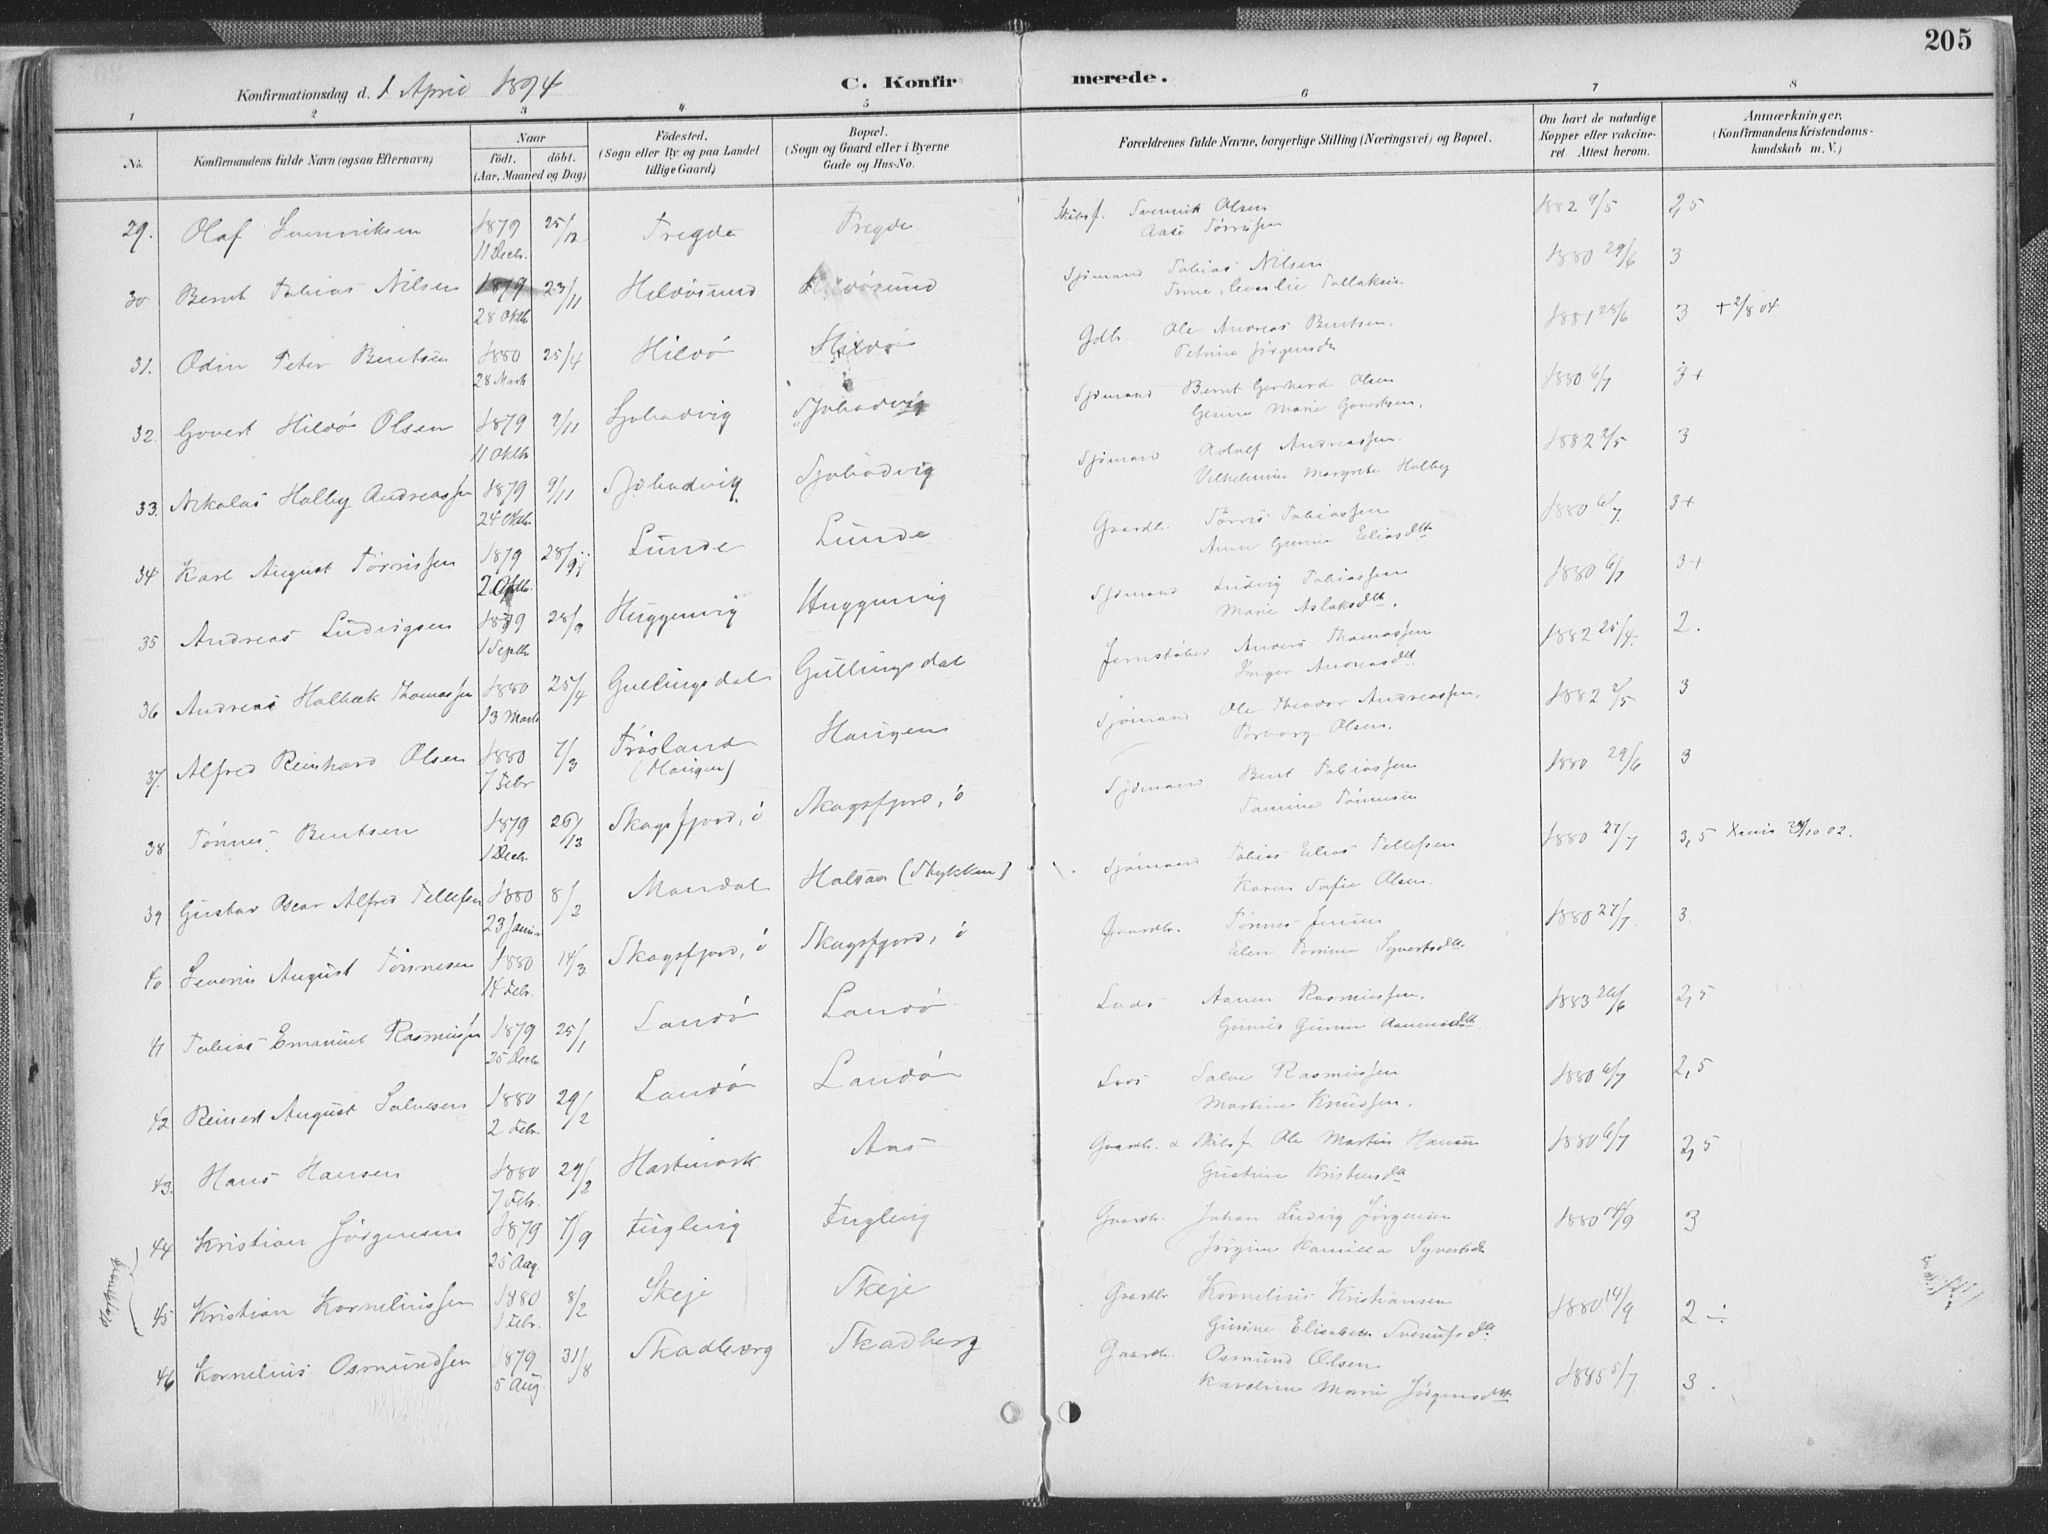 205
Konfirmationsdag d. 1 April 1894
C. Konfirmerede.
1 2 3 4 5 6 7 8
No. Konfirmandens fulde Navn (ogsaa Efternavn) Naar födt. döbt. (Aar, Maaned og Dag) Födested. (Sogn eller By og paa Landet tillige Gaard) Bopæl. (Sogn og Gaard eller i Byerne Gade og Hus-No. Forældrenes fulde Navne, borgerlige Stilling (Næringsvei) og Bopæl. Om havt de naturlige Kopper eller vaksineret. Attest herom. Anmærkninger. (Konfirmandens Kristendomskundskab m. V.)
29. Olaf Svennriksen 1879 25/12 Tregde Tregde Skibsf. Svenrik Olsen 1882 9/5 2,5
11 Decbr. Aase Tørrissen
30 Bernt Tobias Nilsen 1879 23/11 Hildøsund Hildøsund Sjømand Tobias Nilsen 1880 29/6 3
28 Oktbr. Trine Cecilie Tollaksen
31. Odin Peter Bentsen 1880 25/4 Hildø Hildø Gdbr. Ole Andreas Bentsen. 1881 28/6 3 + 2/8 04
28 Marts Petrine Jørgensdtr
32. Govert Hildø Olsen 1879 9/11 Sjøbodvig Sjøbodvig Sjømand Bernt Gerhard Olsen 1880 6/7 3+
11 Oktbr Gesine Marie Govertsen.
33. Nikolai Holby Andreassen 1879 9/11 Sjøbodvig Sjøbodvig Sjømand Adolf Andreassen 1882 2/5 3
24 Oktbr. Vilhelmine Margrete Holby
34 Karl August Tørrissen 1879 28/9 Lunde Lunde Gaardb. Tørris Tobiassen 1880 6/7. 3+
Anne Gurine Eliasdtr
35 Andreas Ludvigsen 1879 28/9 Huggenvig Huggenvig Sjømand Ludvig Tobiassen 1880 6/7 3+
1 Septbr Marie Aslaksdtr.
36 Andreas Holbæk Thomassen 1880 25/4 Gullingsdal Gullingsdal Jernstøber Anders Thomassen 1882 25/4. 2.
13 Marts Inger Andreasdtr
37. Alfred Reinhard Olsen 1880 7/3 Frøsland Haugen Sjømand Ole Theodor Andreassen, 1882 2/5 3
7 Febr (Haugen) Torborg Olsen.
38 Tønnes Bentsen 1879 26/3 Skogsfjord, ö Skogsfjord, ö Sjømand Bent Tobiassen 1880 29/6 3
1 Decbr. Tomine Tønnesen
39 Gustav Oscar Alfred Tellefsen 1880 8/2 Mandal Halsaa (Stykken) Sjømand Tobias Elias Tellefsen 1880 27/7 3,5
23 Januar Karen Sofie Olsen.
40 Severin August Tønnesen 1880 14/3. Skogsfjord, ö Skogsfjord, ö Gaardbr. Tønnes Jensen 1880 27/7 3.
14 Febr. Elen Tomine Syvertsdtr
41 Tobias Emanuel Rasmussen 1879 25/1 Landø Landø Lods Aanen Rasmussen. 1883 26/6 2,5
25 Decbr. Gunild Gurine Aanensdtr.
42 Reinert August Salvesen 1880 29/2 Landø Landø Lods Salve Rasmussen 1880 6/7 2,5
2 Febr. Martine Knudsen.
43. Hans Hansen 1880 29/2 Hartmark Aas Gaardbr. & Skibsf. Ole Martin Hansen 1880 6/7 2,5
7 Febr. Gustine Kristensdtr
44 Kristian Jørgensen 1879 7/9 Fuglevig Fuglevig Gaardbr. Johan Ludvig Jørgensen 1880 14/9 3
25 Aug. Jørgine Kamilla Syvertsdtr
45 Kristian Kornelinssen 1880 8/2 Skeje Skeje Gaardbr Kornelius Kristiansen 1880 14/9 2 ÷
1 Febr. Gurine Elisabeth
46 Kornelius Osmundsen 1879 31/8 Skadberg Skadberg Gaardb. Osmund Olsen 1885 5/7. 3.
5 Aug. Karoline Marie Jørgensdtr